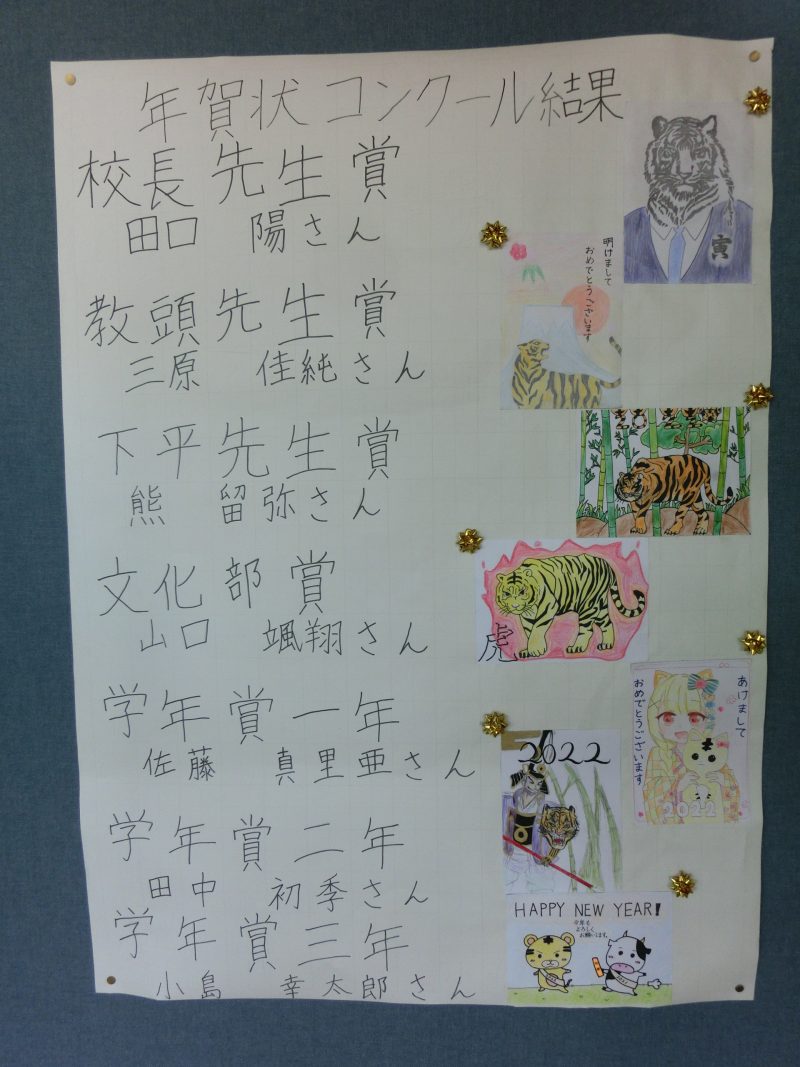 年賀状コンクール結果
校長先生賞
田口 陽さん
教頭先生賞
三原 佳純さん
下平先生賞
熊 留弥さん
文化部賞
山口 颯翔さん
学年賞一年
佐藤 真里亜さん
学年賞二年
田中 初季さん
学年賞三年
小島 幸太郎さん
寅
明けまして
おめでとうございます
虎
あけまして
おめでとうございます
2022
2022
HAPPY NEW YEAR!
今年も
よろしく
お願いします。